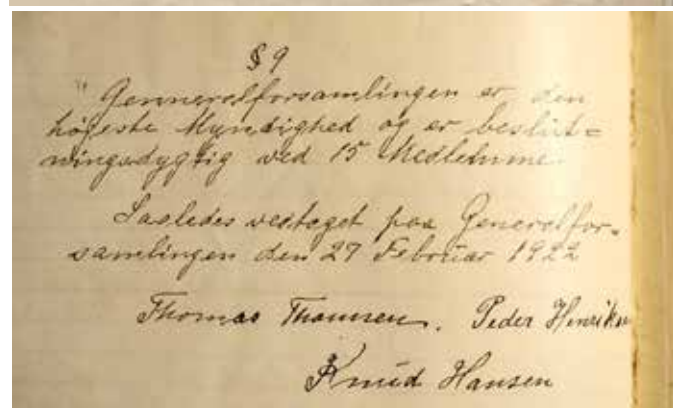 § 9
" Genneralforsamlingen er den
högeste Myndighed og er beslut=
ningsdygtig ved 15 Medlemme.
Saaledes vedtaget paa Generalfor-
samlingen den 27 Februar 1922
Thomas Thomsen. Peder Henriksen
Knud Hansen